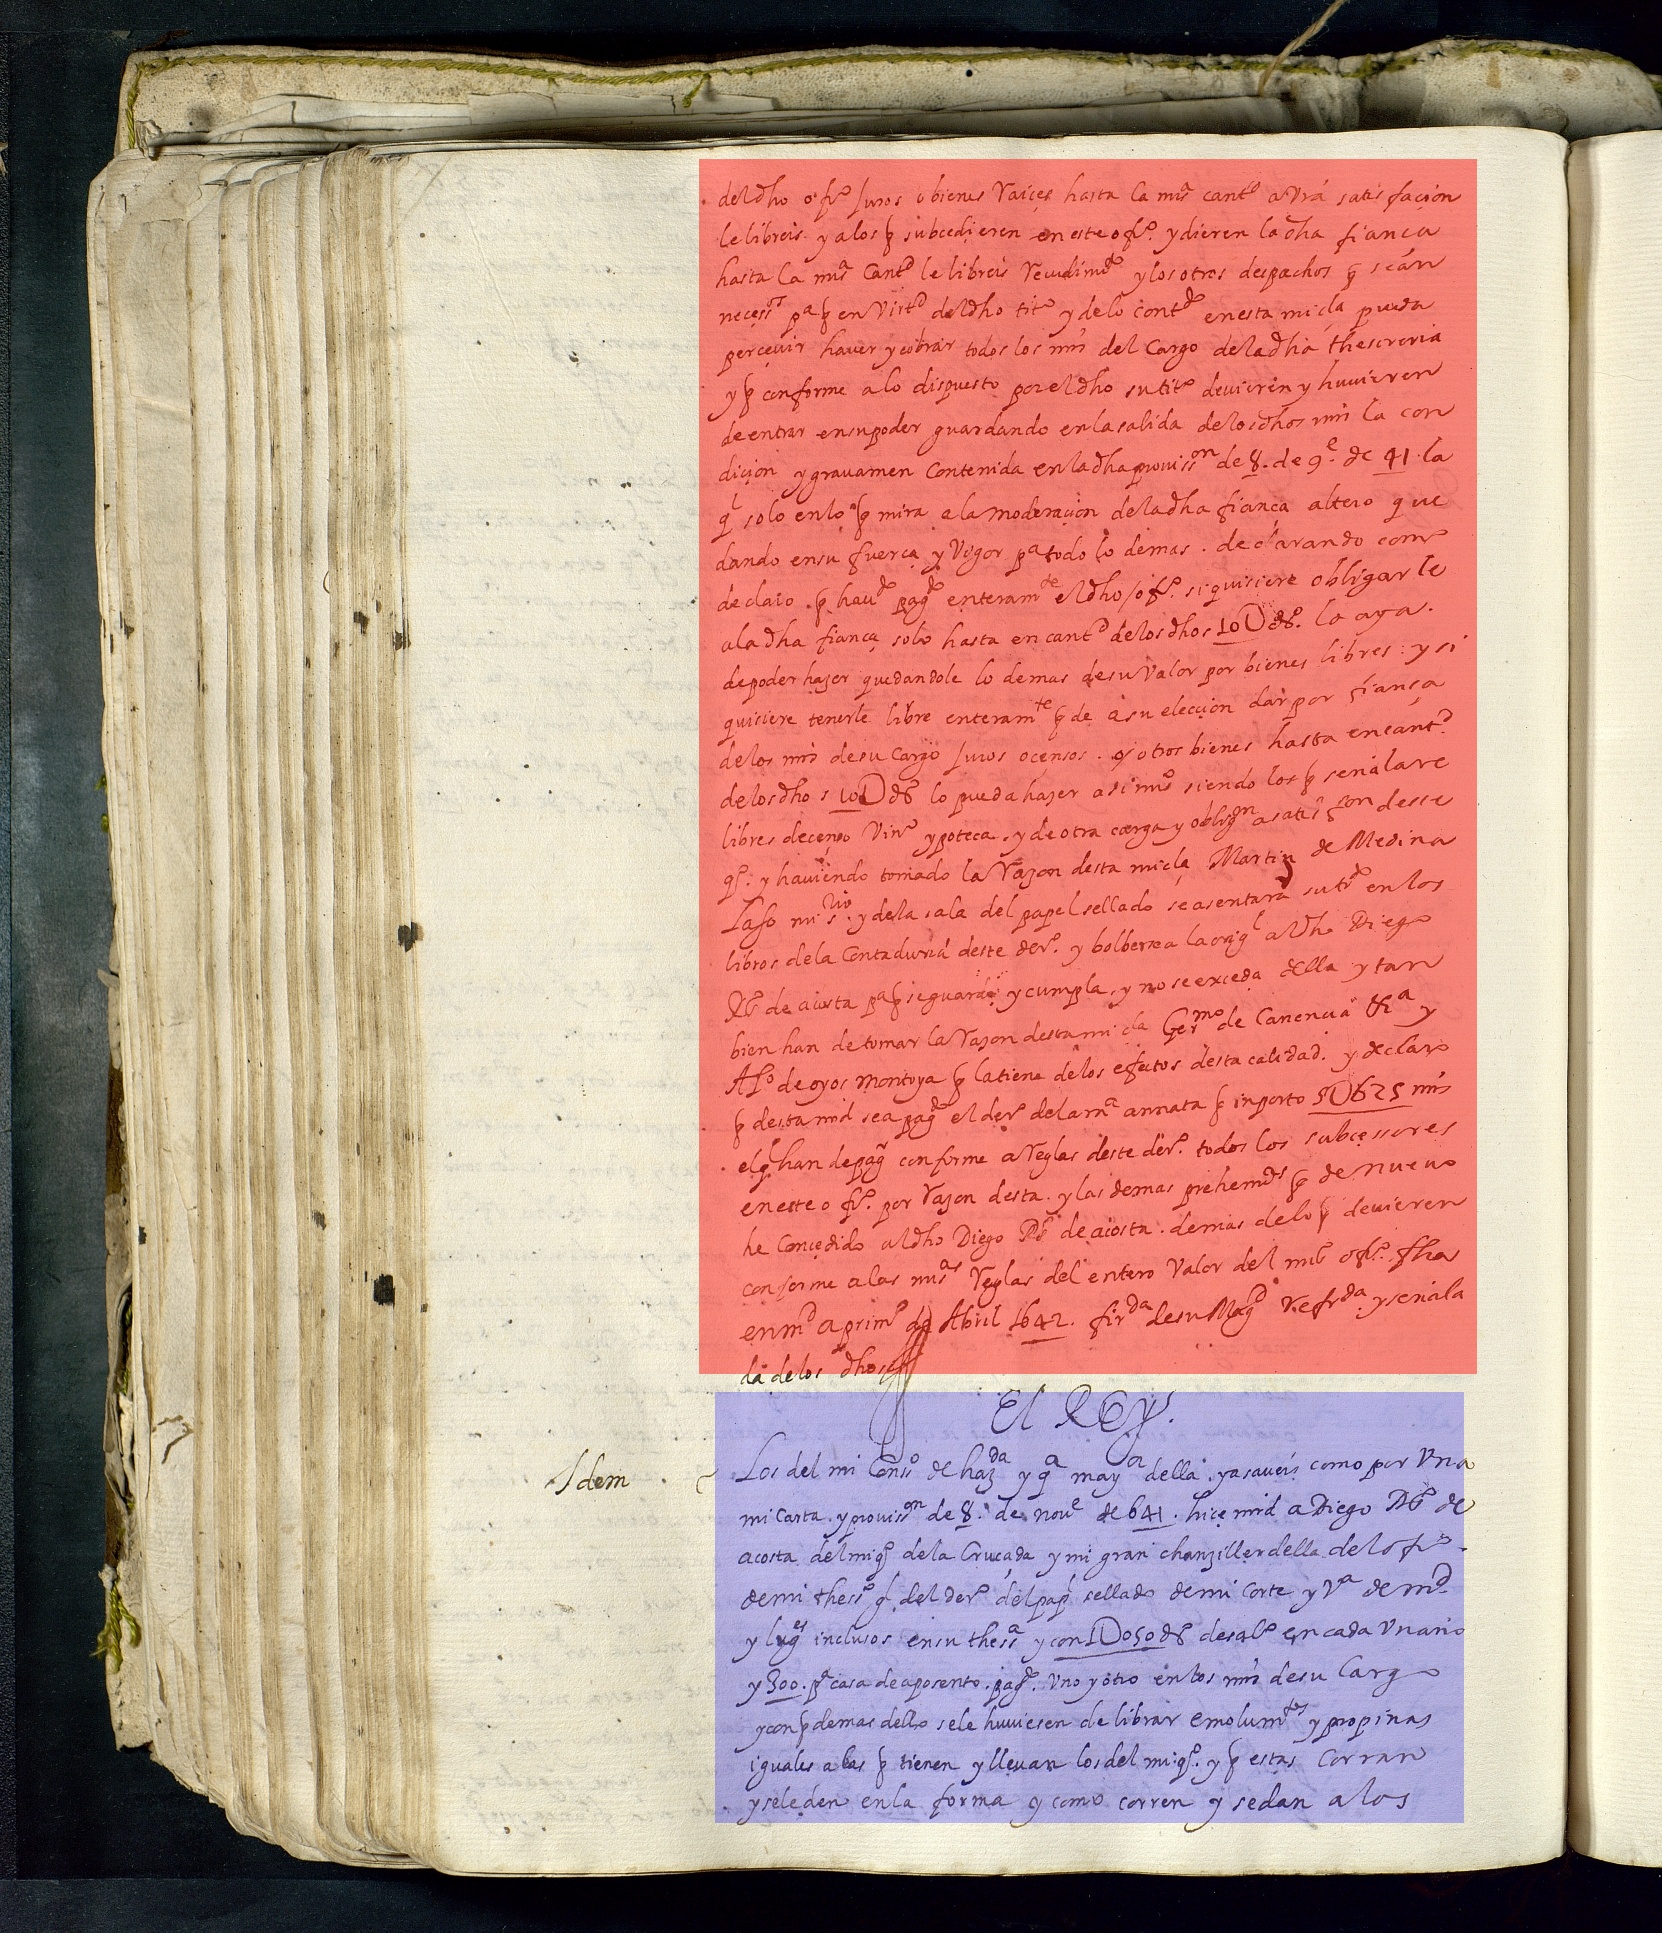 del dho off.º Juros o bienes Raices hasta la misª cantᵈ a vrâ satisfaçion
le libreis y a los q̃ subcedieren en este off.º y dieren la dha fiança
hasta la misª Cantᵈ le libreis Recudimᵗᵒ y los otros despachos q̃ seán
necessºˢ pª q̃ en Virtᵈ del dho titº y de lo contᵈᵒ en esta mi cla pueda
perceuir hauer y cobrar todos los mrs del Cargo de la dha thesoreria
y q̃ conforme a lo dispuesto por el dho su titº deuieren y huuieren
de entrar en su poder guardando en la salida de los dhos mrs la con
diçion y grauamen Contenida en la dha prouissᵒⁿ de 8. de 9ᵉ. de 41. la
ql solo en lo q̃ mira a la moderaçion de la dha fiança altero que
dando en su fuerça y Vigor pª todo lo demas. declarando comº
declaro. q̃ hauᵈᵒ pagᵈᵒ enteramᵗᵉ el dho off.º si quisiere obligarle
a la dha fiança solo hasta en cantᵈ de los dhos 10D dsº. lo aya.
de poder hazer quedandole lo demas de su Valor por bienes libres. y si
quisiere tenerle libre enteramᵗᵉ q̃ de a su eleccion dar por fiança
de los mrs de su cargo Juros o censos. o otros bienes hasta en cantᵈ.
de los dhos 10D dsº lo pueda hazer asimsº siendo los q̃ señalare
libres de censo Vinº ypoteca. y de otra carga y obligᵒⁿ a satisfᶻᵒⁿ desse
qº. y hauiendo tomado la Razon desta mi cla Martin de Medina
Laso mi sʳⁱᵒ. y de la sala del papel sellado se asentara su trᵈᵒ en los
libros de la Contaduria deste derº. y bolbera la origˡ al dho Diego
Rˢ de acosta pª q̃ se guarde y cumpla. y no se exceda della y tan
bien han de tomar la Razon desta mi cla Germᵒ de Canencia thª y
Alº de oyos montoya q̃ la tiene de los efectos desta calidad. y declaro
q̃ desta md se a pagᵈᵒ el derº de la mª annata q̃ inporto 5D625 mrs
el q̃ han de pagʳ conforme a Reglas deste derº. todos los subcessores
en este off.º. por Razon desta. y las demas prehemᵃˢ q̃ de nueuo
he Concedido al dho Diego Rˢ de acosta. demas de lo q̃ deuieren
conforme a las misᵃˢ Reglas del entero Valor del mismº off.º. fha
en mᵈ a primº de Abril 1642. firᵈᵃ de su Magᵈ Refrᵈᵃ y señala
da de los dhos
El Rey.
Idem
Los del mi Consº de hazᵈᵃ y qª mayª della. ya saueis como por Vna
mi Carta y prouissᵒⁿ de 8. de nouᵉ de 641. hice md a Diego Rˢ de
acosta del mi qº de la Cruçada y mi gran chanziller della del off.º.
de mi thesº gˡ del derº del papˡ sellado de mi Corte y Vª de mᵈ.
y lugᵉˢ inclusos en su thesª y con 1D050 dsº de salº en cada Vn año
y 300. pª casa de aposento. pagᵈᵒ. vno y otro en los mrs de su Cargo
y con q̃ demas dello se le huuiesen de librar emolumᵗᵒˢ y propinas
iguales a las q̃ tienen y lleuan los del mi qº. y q̃ estas corran
y se le den en la forma y como corren y se dan a los